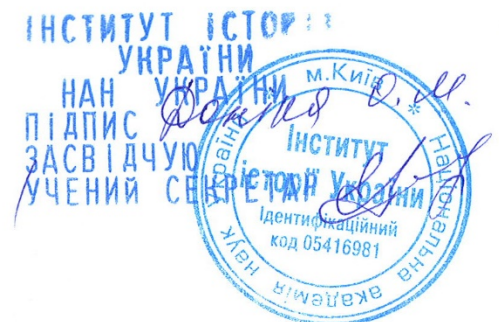 ІНСТИТУТ ІСТОРІЇ
УКРАЇНИ
НАН УКРАЇНИ
ПІДПИС
О. М.
ЗАСВІДЧУЮ
УЧЕНИЙ СЕКРЕТАР
м.Київ * Національна академія наук України *
Інститут
історії України
Ідентифікаційний
код 05416981